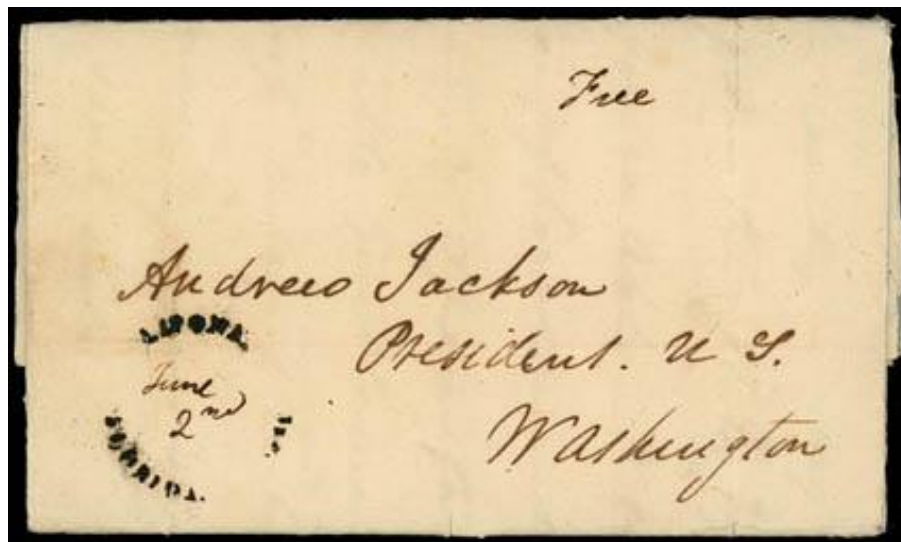 Free
Andrew Jackson
President. U S.
Washington
LIPONA.
June
2nd